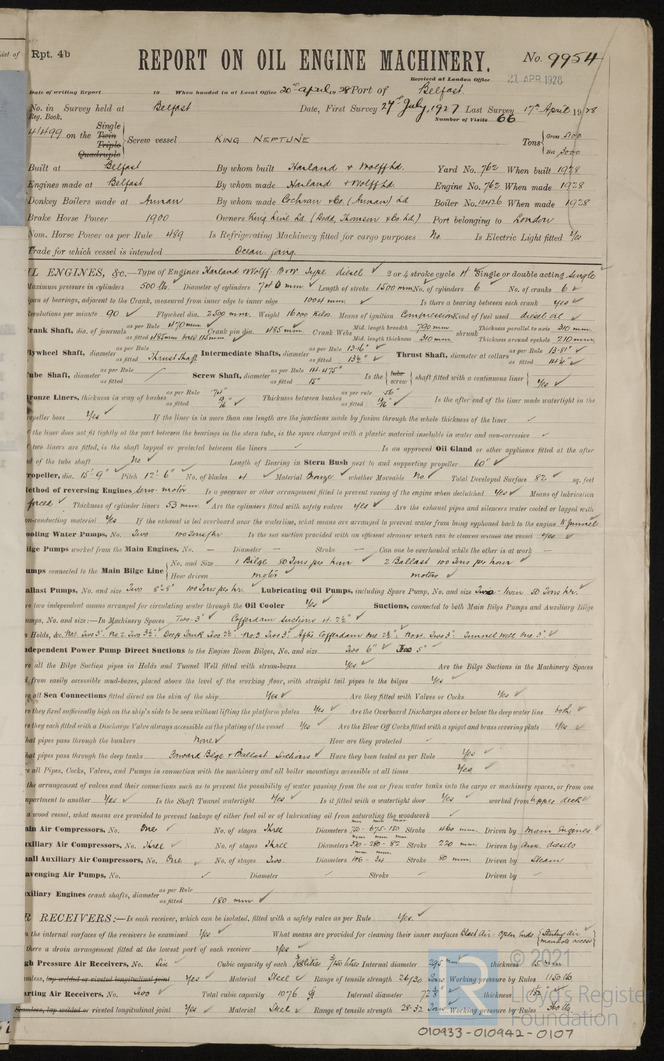 Rpt. 4b
REPORT ON OIL ENGINE MACHINERY.
No. 9954
Received at London Office
21 APR 1928
Date of writing Report 19 When handed in at Local Office 20th April 1928 Port of Belfast
No. in Survey held at Belfast Date, First Survey 27th July, 1927 Last Survey 17th April 1928
Reg. Book. Number of Visits 66
44499 on the Single Twin Triple Quadruple Screw vessel KING NEPTUNE Tons Gross Net
Built at Belfast By whom built Harland & Wolff Ld. Yard No. 762 When built 1928
Engines made at Belfast By whom made Harland & Wolff Ld. Engine No. 762 When made 1928
Donkey Boilers made at Annan By whom made Cochran & Co. (Annan) Ld Boiler No. 10426 When made 1928
Brake Horse Power 1900 Owners King Line Ld (Dodd, Thomson & Co Ld) Port belonging to London
Nom. Horse Power as per Rule 489 Is Refrigerating Machinery fitted for cargo purposes No. Is Electric Light fitted Yes
Trade for which vessel is intended Ocean going.
OIL ENGINES, &c.—Type of Engines Harland Wolff B & W Type diesel 2 or 4 stroke cycle 4 Single or double acting Single
Maximum pressure in cylinders 500 lbs. Diameter of cylinders 740 mm Length of stroke 1500 mm No. of cylinders 6 No. of cranks 6
Span of bearings, adjacent to the Crank, measured from inner edge to inner edge 1004 mm. Is there a bearing between each crank Yes
Revolutions per minute 90 Flywheel dia. 2500 mm. Weight Means of ignition Compression Kind of fuel used diesel oil
Crank Shaft, dia. of journals as per Rule 470 mm as fitted 485 mm Crank pin dia. 485 mm. Crank Webs Mid. length breadth 790 mm Mid. length thickness 310 mm shrunk Thickness parallel to axis 310 mm Thickness around eyehole 210 mm
Flywheel Shaft, diameter as per Rule as fitted Thrust Shaft Intermediate Shafts, diameter as per Rule as fitted 13½" Thrust Shaft, diameter at collars as per Rule as fitted
Tube Shaft, diameter as per Rule as fitted Screw Shaft, diameter as per Rule 14.475" as fitted 15" Is the tube screw shaft fitted with a continuous liner Yes
Bronze Liners, thickness in way of bushes as per Rule as fitted Thickness between bushes as per rule as fitted Is the after end of the liner made watertight in the
propeller boss Yes If the liner is in more than one length are the junctions made by fusion through the whole thickness of the liner
If the liner does not fit tightly at the part between the bearings in the stern tube, is the space charged with a plastic material insoluble in water and non-corrosive
If two liners are fitted, is the shaft lapped or protected between the liners Is an approved Oil Gland or other appliance fitted at the after
end of the tube shaft No Length of Bearing in Stern Bush next to and supporting propeller 60"
Propeller, dia. 15'-9" Pitch 12'-6" No. of blades 4 Material Bronze whether Moveable No Total Developed Surface 82 sq. feet
Method of reversing Engines Servo motor Is a governor or other arrangement fitted to prevent racing of the engine when declutched Yes Means of lubrication
forced Thickness of cylinder liners 53 mm Are the cylinders fitted with safety valves Yes Are the exhaust pipes and silencers water cooled or lagged with
non-conducting material Yes If the exhaust is led overboard near the waterline, what means are arranged to prevent water from being syphoned back to the engine funnel
Cooling Water Pumps, No. Two 100 Tons/hr. Is the sea suction provided with an efficient strainer which can be cleared within the vessel Yes
Bilge Pumps worked from the Main Engines, No. — Diameter — Stroke — Can one be overhauled while the other is at work —
Pumps connected to the Main Bilge Line No. and Size 1 Bilge 80 Tons per hour 2 Ballast 100 Tons per hour
How driven motor motors
Ballast Pumps, No. and size Two 100 Tons per hr. Lubricating Oil Pumps, including Spare Pump, No. and size Two 50 Tons hr.
Are two independent means arranged for circulating water through the Oil Cooler Yes Suctions, connected to both Main Bilge Pumps and Auxiliary Bilge
Pumps, No. and size:—In Machinery Spaces Two 3" Cofferdam Suctions 4 2½"
In Holds, &c. No. 1 Two 3", No. 2 Two 3½", Deep Tank Two 2½", No. 3 Two 3", Aft Cofferdam One 2½", No. 4 Two 3", Tunnel Well One 3"
Independent Power Pump Direct Suctions to the Engine Room Bilges, No. and size Two 6" 5"
Are all the Bilge Suction pipes in Holds and Tunnel Well fitted with strum-boxes Yes Are the Bilge Suctions in the Machinery Spaces
led from easily accessible mud-boxes, placed above the level of the working floor, with straight tail pipes to the bilges Yes
Are all Sea Connections fitted direct on the skin of the ship Yes Are they fitted with Valves or Cocks Yes
Are they fixed sufficiently high on the ship's side to be seen without lifting the platform plates Yes Are the Overboard Discharges above or below the deep water line both
Are they each fitted with a Discharge Valve always accessible on the plating of the vessel Yes Are the Blow Off Cocks fitted with a spigot and brass covering plate Yes
What pipes pass through the bunkers None How are they protected
What pipes pass through the deep tanks Forward Bilge & Ballast Suctions Have they been tested as per Rule Yes
Are all Pipes, Cocks, Valves, and Pumps in connection with the machinery and all boiler mountings accessible at all times Yes
Is the arrangement of valves and their connections such as to prevent the possibility of water passing from the sea or from water tanks into the cargo or machinery spaces, or from one
compartment to another Yes Is the Shaft Tunnel watertight Yes Is it fitted with a watertight door Yes worked from Upper deck
If a wood vessel, what means are provided to prevent leakage of either fuel oil or of lubricating oil from saturating the woodwork
Main Air Compressors, No. One No. of stages Three Diameters 720 - 675 - 150 Stroke 460 mm Driven by Main Engines
Auxiliary Air Compressors, No. Three No. of stages Three Diameters Stroke 220 mm. Driven by Aux. diesels
Small Auxiliary Air Compressors, No. One No. of stages Two Diameters 106 - 34 Stroke 80 mm. Driven by Steam
Scavenging Air Pumps, No. Diameter Stroke Driven by
Auxiliary Engines crank shafts, diameter as per Rule as fitted 180 mm
AIR RECEIVERS:—Is each receiver, which can be isolated, fitted with a safety valve as per Rule Yes.
Can the internal surfaces of the receivers be examined Yes What means are provided for cleaning their inner surfaces Blast Air - Open Ends Starting Air manhole access
Is there a drain arrangement fitted at the lowest part of each receiver Yes
High Pressure Air Receivers, No. Six Cubic capacity of each Internal diameter 295 mm thickness 15 mm
Seamless, lap welded or riveted longitudinal joint Yes Material Steel Range of tensile strength 26/30 Tons Working pressure by Rules 1150 lb
Starting Air Receivers, No. Two Total cubic capacity 1076 Internal diameter thickness
Seamless, lap welded or riveted longitudinal joint Yes Material Steel Range of tensile strength 28-32 Tons Working pressure by Rules
© 2021
Lloyd's Register
Foundation
010933-010942-0107